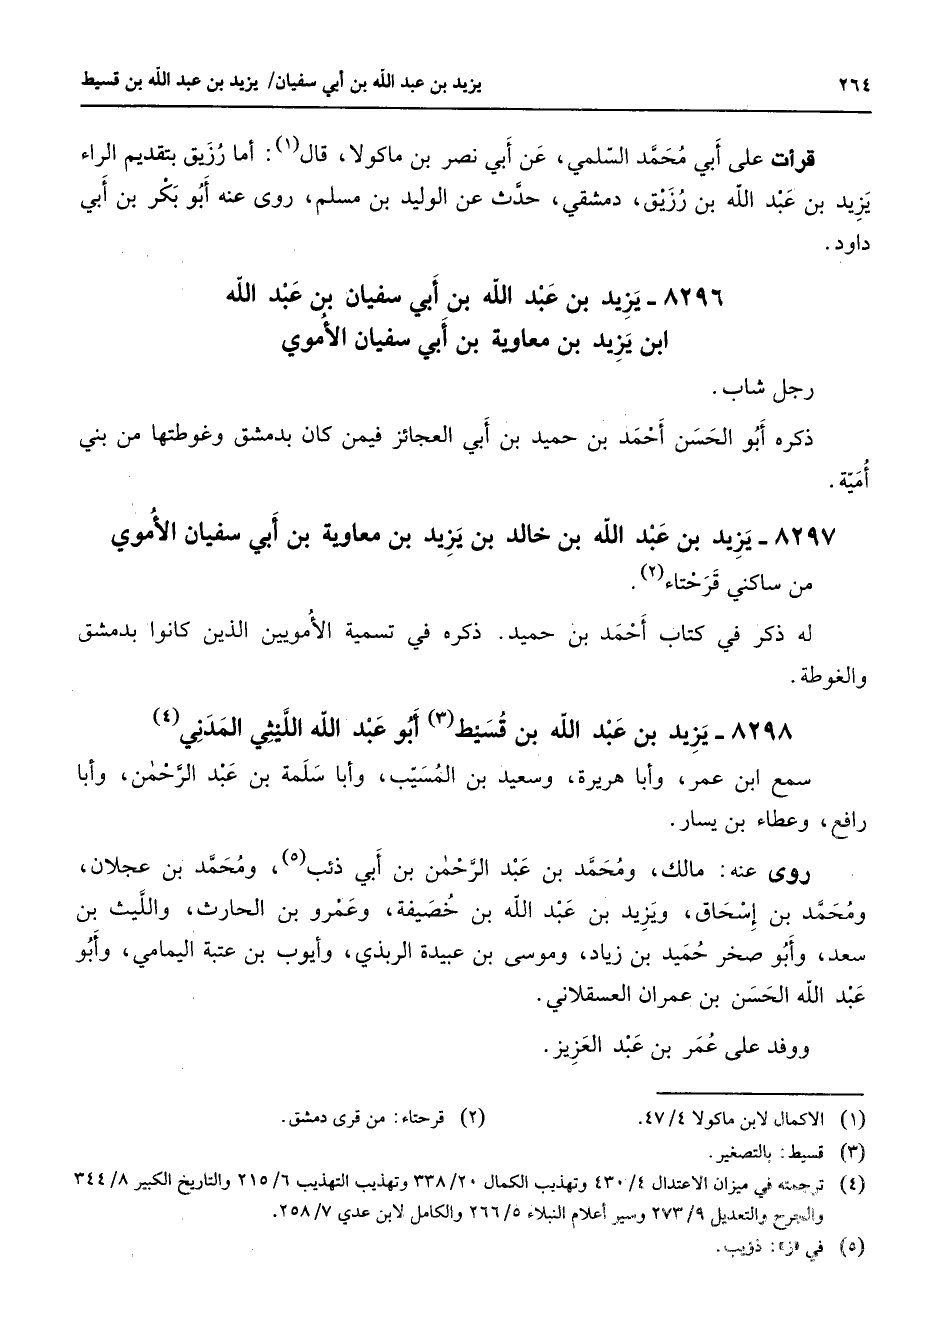 ٢٦٤ يزيد بن عبد الله بن أبي سفيان/ يزيد بن عبد الله بن قسيط
قرأت على أبي مُحَمَّد السّلمي، عَن أَبي نصر بن ماكولا، قال(١): أما رُزَيق بتقديم الراء
يَزِيد بن عَبْد الله بن رُزَيْق، دمشقي، حدَّث عن الوليد بن مسلم، روى عنه أَبُو بَكْر بن أَبي
داود.
٨٢٩٦ ـ يَزِيد بن عَبْد الله بن أَبي سفيان بن عَبْد الله
ابن يَزِيد بن معاوية بن أَبي سفيان الأُموي
رجل شاب.
ذكره أَبُو الحَسَن أَحْمَد بن حميد بن أَبي العجائز فيمن كان بدمشق وغوطتها من بني
أُمَيّة.
٨٢٩٧ ـ يَزِيد بن عَبْد الله بن خالد بن يَزِيد بن معاوية بن أَبي سفيان الأُموي
من ساكني قَرَحْتاء(٢).
له ذكر في كتاب أَحْمَد بن حميد. ذكره في تسمية الأُمويين الذين كانوا بدمشق
والغوطة.
٨٢٩٨ ـ يَزِيد بن عَبْد الله بن قُسَيْط(٣) أَبُو عَبْد الله اللَّيْثِي المَدَنِي(٤)
سمع ابن عمر، وأبا هريرة، وسعيد بن المُسَيّب، وأبا سَلَمة بن عَبْد الرَّحْمٰن، وأبا
رافع، وعطاء بن يسار.
روى عنه: مالك، ومُحَمَّد بن عَبْد الرَّحْمٰن بن أَبي ذئب(٥)، ومُحَمَّد بن عجلان،
ومُحَمَّد بن إِسْحَاق، ويَزِيد بن عَبْد الله بن خُصَيفة، وعَمْرو بن الحارث، واللَّيث بن
سعد، وأَبُو صخر حُمَيد بن زياد، وموسى بن عبيدة الربذي، وأيوب بن عتبة اليمامي، وأَبُو
عَبْد الله الحَسَن بن عمران العسقلاني.
ووفد على عُمَر بن عَبْد العَزِيز.
(١) الاكمال لابن ماكولا ٤/ ٤٧. (٢) قرحتاء: من قرى دمشق.
(٣) قسيط: بالتصغير.
(٤) ترجمته في ميزان الاعتدال ٤/ ٤٣٠ وتهذيب الكمال ٢٠/ ٣٣٨ وتهذيب التهذيب ٦/ ٢١٥ والتاريخ الكبير ٨/ ٣٤٤
والجرح والتعديل ٩/ ٢٧٣ وسير أعلام النبلاء ٥/ ٢٦٦ والكامل لابن عدي ٧/ ٢٥٨.
(٥) في «ز»: ذؤيب.